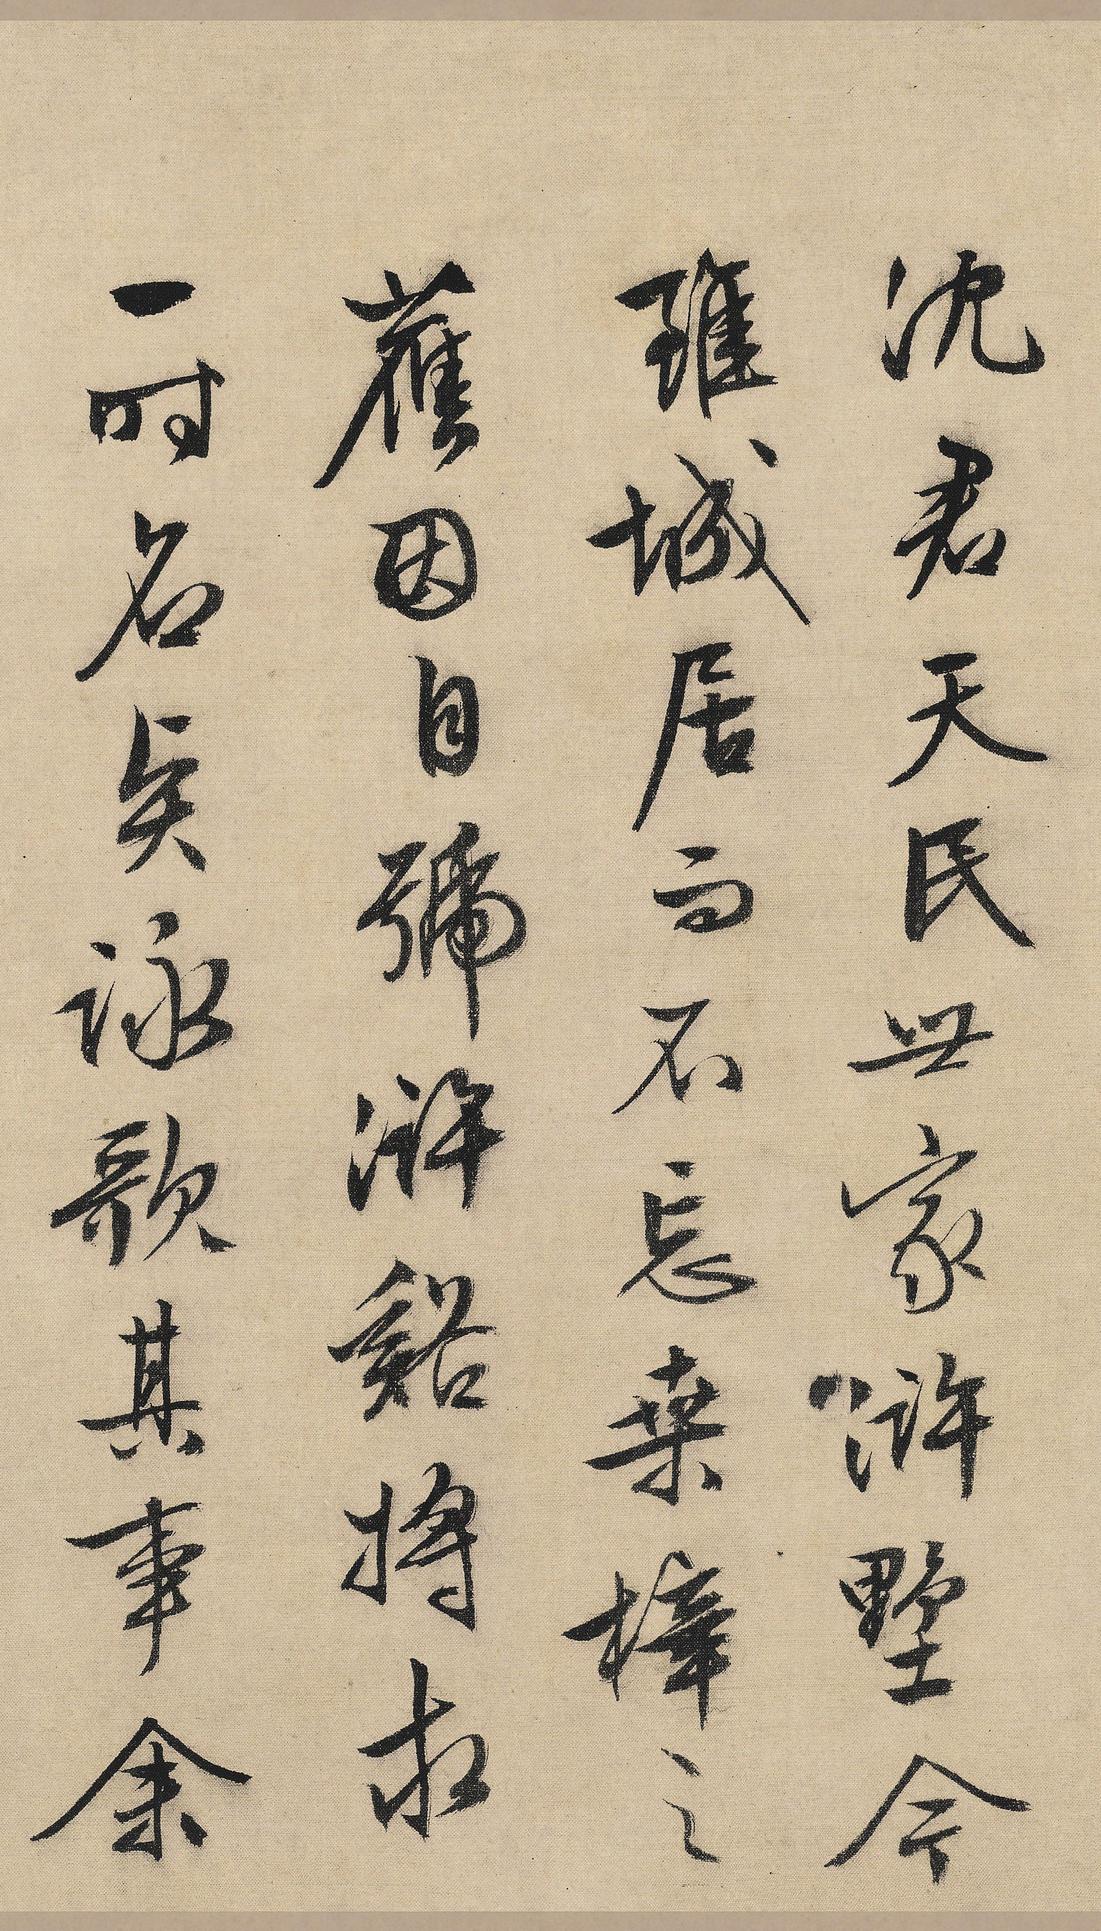 沈君天民世家滸墅今
雖城居而不忘桒梓之
舊因自號滸谿將求
一時名矣詠歌其事余